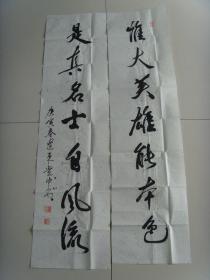 惟大英雄能本色
是真名士自风流
庚寅春